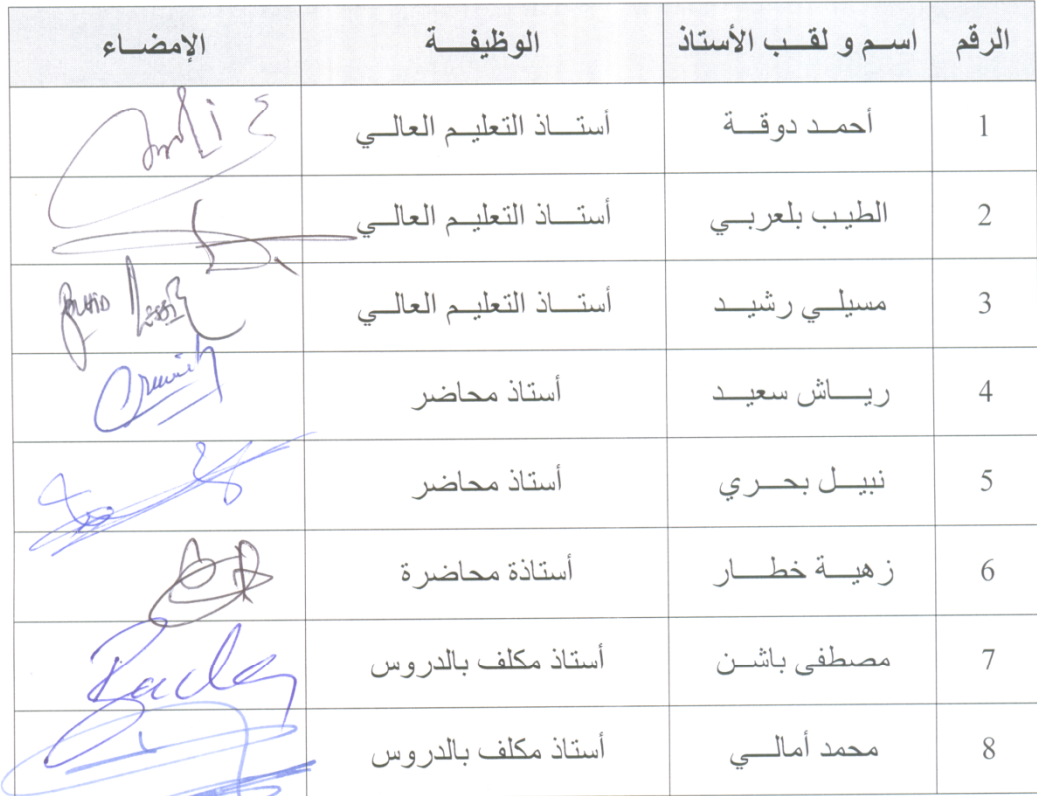 الرقم اسم و لقب الأستاذ الوظيفة الإمضاء
1 أحمد دوقة أستاذ التعليم العالي
2 الطيب بلعربي أستاذ التعليم العالي
3 مسيلي رشيد أستاذ التعليم العالي
4 رياش سعيد أستاذ محاضر
5 نبيل بحري أستاذ محاضر
6 زهية خطار أستاذة محاضرة
7 مصطفى باشن أستاذ مكلف بالدروس
8 محمد أمالي أستاذ مكلف بالدروس